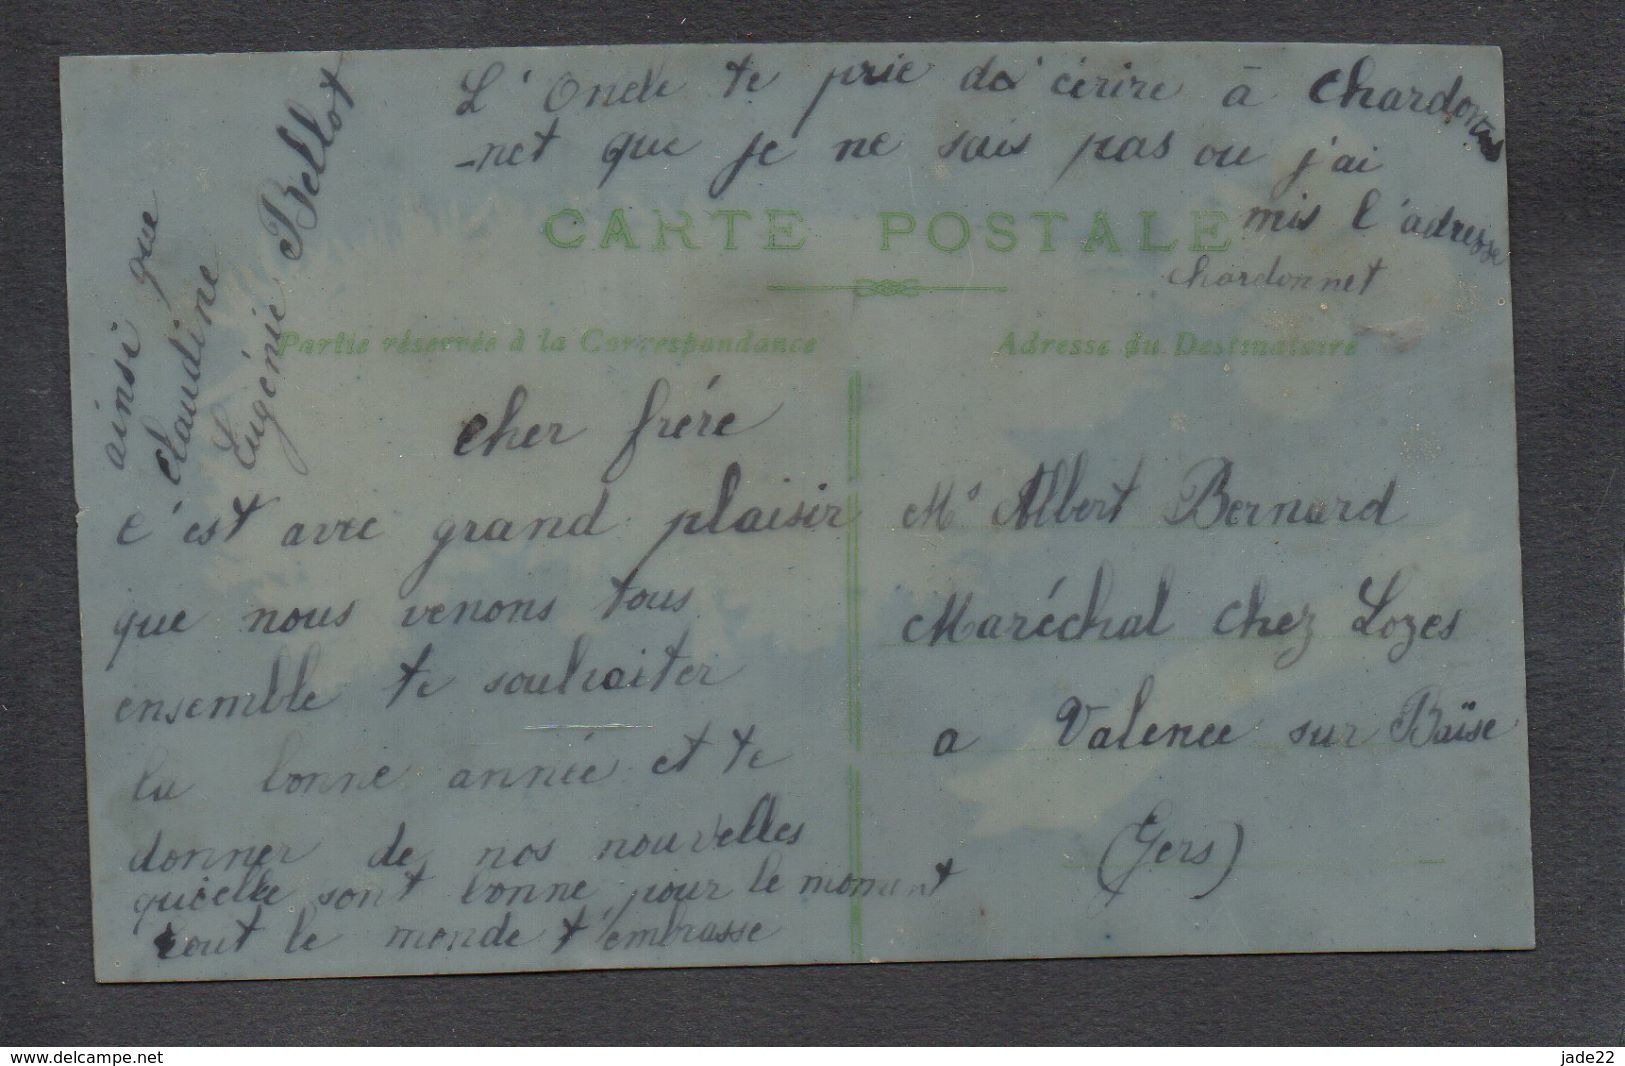 L'Oncle te prie da'cérire à Chardon
-net que je ne sais pas ou j'ai
mis l'adresse
Chardonnet
CARTE POSTALE
Partie réservée à la Correspondance
Adresse du Destinataire
cher frére
c'est avec grand plaisir
que nous venons tous
ensemble te souhaiter
la bonne année et te
donner de nos nouvelles
quicelle sont bonne pour le moment
tout le monde t'embrasse
ainsi que
claudine
Eugénie Bellot
Mr Albert Bernard
Maréchal chez Lozes
a Valence sur Baïse
(Gers)
www.delcampe.net
jade22